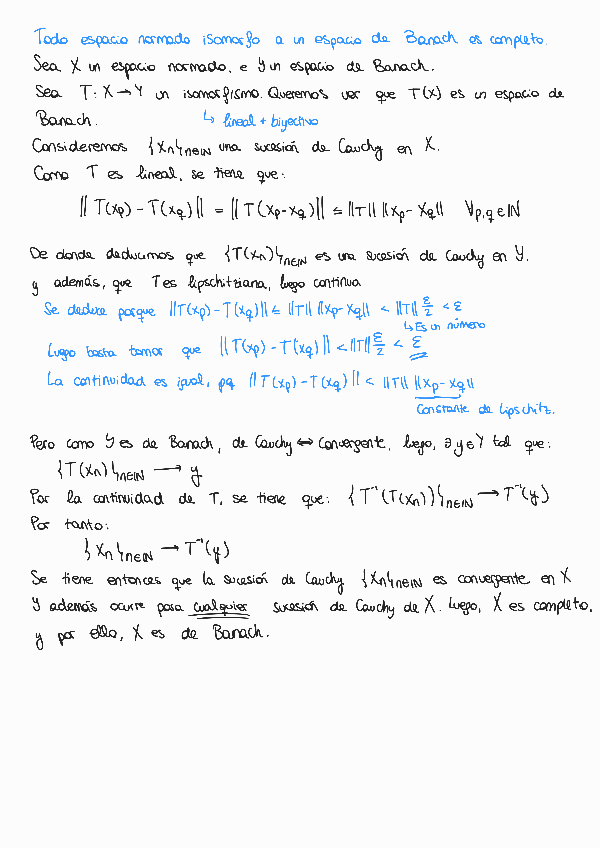 Todo espacio normado isomorfo a un espacio de Banach es completo.
Sea X un espacio normado, e Y un espacio de Banach.
Sea T: X → Y un isomorfismo. Queremos ver que T(X) es un espacio de
Banach. ↳ lineal + biyectivo
Consideremos {Xn}n∈ℕ una sucesión de Cauchy en X.
Como T es lineal, se tiene que:
‖T(xp) - T(xq)‖ = ‖T(xp-xq)‖ ≤ ‖T‖ ‖xp - xq‖ ∀p,q∈ℕ
De donde deducimos que {T(xn)}n∈ℕ es una sucesión de Cauchy en Y.
y además, que T es lipschitziana, luego continua
Se deduce porque ‖T(xp) - T(xq)‖ ≤ ‖T‖ ‖xp-xq‖ < ‖T‖ ε/2 < ε
↳ Es un número
Luego basta tomar que ‖T(xp) - T(xq)‖ < ‖T‖ ε/2 < ε
La continuidad es igual, pq ‖T(xp) - T(xq)‖ < ‖T‖ ‖xp-xq‖
Constante de Lipschitz.
Pero como Y es de Banach, de Cauchy ⟺ Convergente, luego, ∃y∈Y tal que:
{T(xn)}n∈ℕ → y
Por la continuidad de T, se tiene que: {T⁻¹(T(xn))}n∈ℕ → T⁻¹(y)
Por tanto:
{xn}n∈ℕ → T⁻¹(y)
Se tiene entonces que la sucesión de Cauchy {xn}n∈ℕ es convergente en X
Y además ocurre para cualquier sucesión de Cauchy de X. Luego, X es completo,
y por ello, X es de Banach.